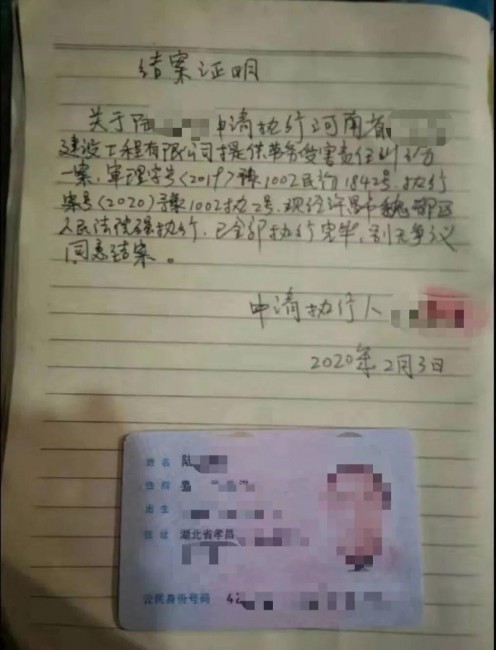 结案证明
关于陆 申请执行河南省
建设工程有限公司提供劳务受害责任纠纷
一案,审理字号<2019>豫1002民初1842号,执行
案号<2020>豫1002执2号,现经许昌市魏都区
人民法院强执行,已全部执行完毕,别无争议
同意结案。
申请执行人
2020年2月3日
姓名 陆
性别
出生
住址 湖北省孝昌
公民身份号码 42